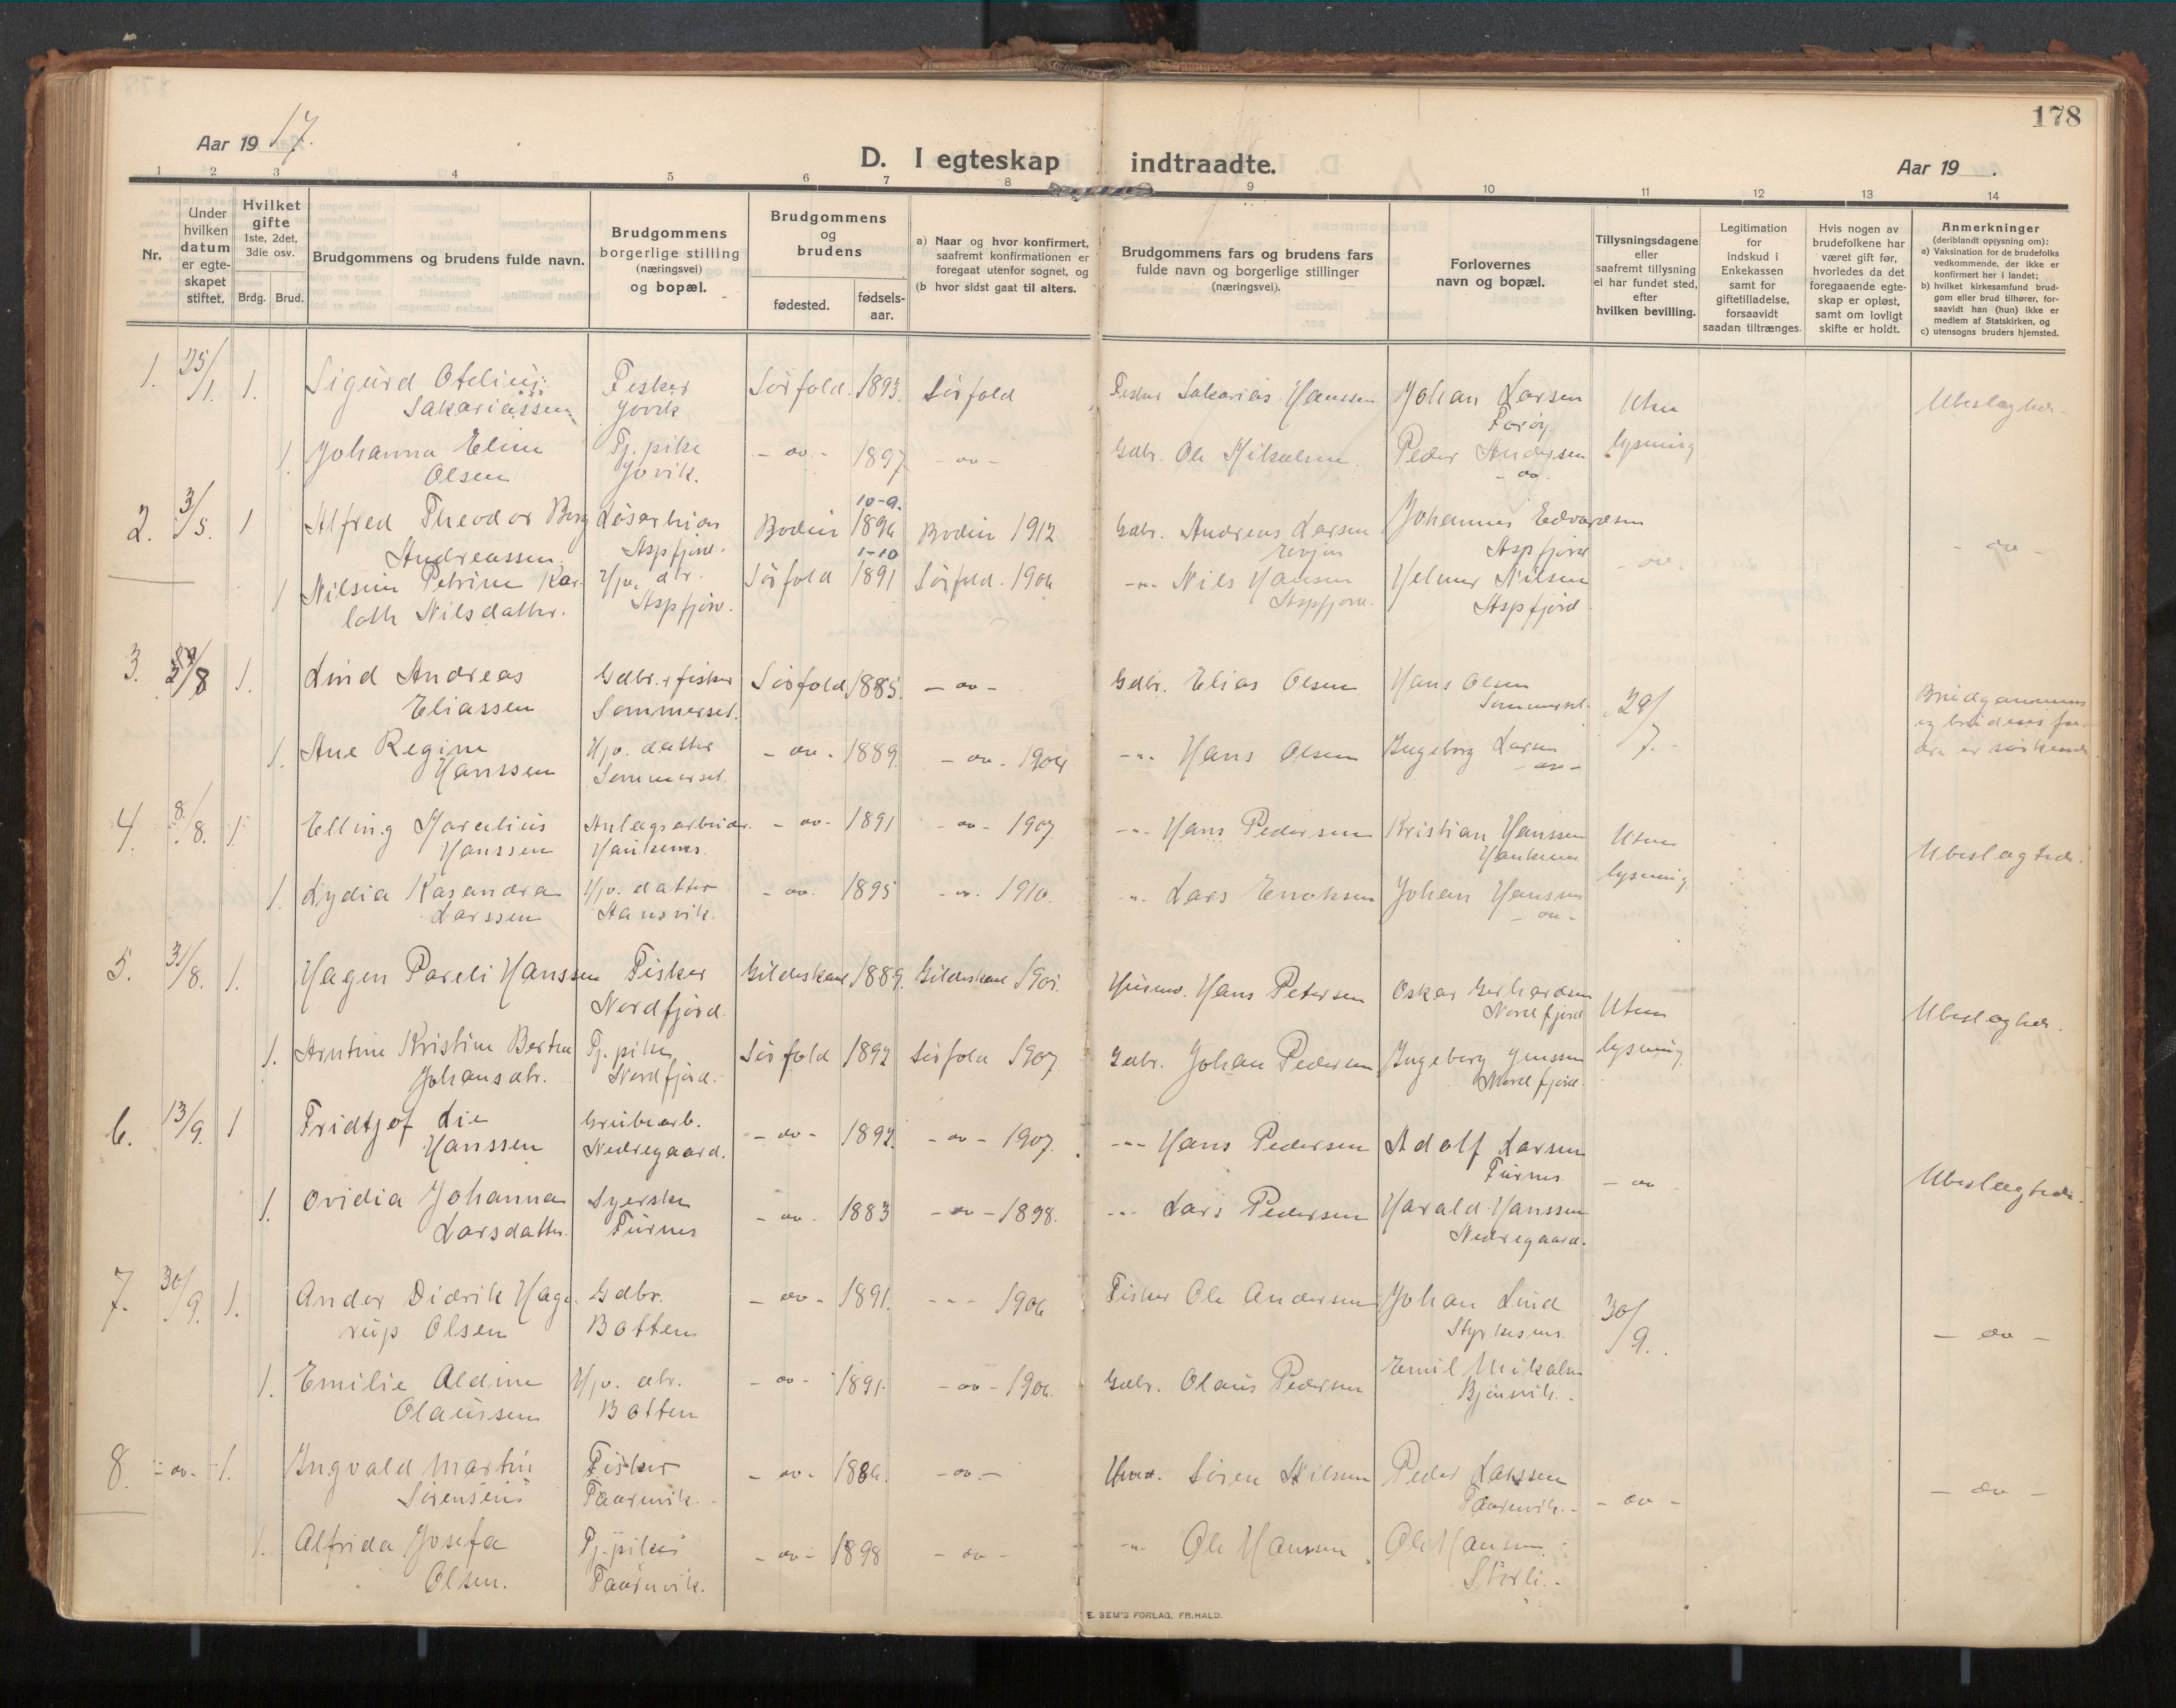 178
Aar 1917.
D. I egteskap indtraadte.
Aar 19 .
1 2 3 4 5 6 7 8 9 10 11 12 13 14
Nr.
Under hvilken datum er egteskapet stiftet.
Hvilket gifte 1ste, 2det, 3die osv.
Brdg. Brud.
Brudgommens og brudens fulde navn.
Brudgommens borgerlige stilling (næringsvei) og bopæl.
Brudgommens og brudens
fødested.
fødsels-aar.
a) Naar og hvor konfirmert, saafremt konfirmationen er foregaat utenfor sognet, og
(b hvor sidst gaat til alters.
Brudgommens fars og brudens fars fulde navn og borgerlige stillinger (næringsvei).
Forlovernes navn og bopæl.
Tillysningsdagene eller saafremt tillysning ei har fundet sted, efter hvilken bevilling.
Legitimation for indskud i Enkekassen samt for giftetilladelse, forsaavidt saadan tiltrænges.
Hvis nogen av brudefolkene har været gift før, hvorledes da det foregaaende egteskap er opløst, samt om lovligt skifte er holdt.
Anmerkninger (deriblandt opjysning om):
a) Vaksination for de brudefolks vedkommende, der ikke er konfirmert her i landet;
b) hvilket kirkesamfund brudgom eller brud tilhører, forsaavidt han (hun) ikke er medlem af Statskirken, og
c) utensogns bruders hjemsted.
1. 25/1. 1. Sigurd Otelius Fisker Sørfold. 1893. Sørfold Fisker Sakarias Hanssen Johan Larsen Uten Ubeslægted.
Sakariassen Jovik Farøy.
1. Johanna Eline Tj. pike - do - 1897 - do - Gdbr. Ole Mikalsen Peder Andersen lysning
Olsen Jovik. - do -
10-9.
2. 3/5. 1 Alfred Theodor Berg Løsarbider Bodin 1896 Bodin 1912 Gdbr. Andreas Larsen Johannes Edvardsen - do -
Andreassen. Aspfjord. Evjen Aspfjord - do -
1-10
1 Nilsine Petrine Kar- Hjv. dtr. Sørfold 1891 Sørfold. 1906 -"- Nils Hansen Helmer Nilsen
loth Nilsdatter. Aspfjord. Aspfjord. Aspfjord
3. /8 1. Lind Andreas Gdbr. & fisker Sørfold 1885. - do - Gdbr. Elias Olsen Hans Olsen 29/7. Brudgommens
Eliassen Sommerset. Sommerset. og brudens for-
1. Ane Regine Hjv. datter - do - 1889. - do - 1904 -"- Hans Olsen Ingeborg Larsen dre er søskende
Hanssen Sommerset. - do -
4. 8/8. 1. Elling Marelius Anlægsarbeider. - do - 1891 - do - 1907. -"- Hans Pedersen Kristian Hanssen Uten Ubeslægtede.
Hanssen
1. Lydia Kasandra Hjv. datter - do - 1895 - do - 1910. -"- Lars Enoksen Johan Hanssen lysning
Larssen - do -
5. 31/8. 1. Hagen Pareli Hanssen Fisker Gildeskaal 1889. Gildeskaal Husm. Hans Petersen Oskar Gerhardsen Uten Ubeslægted.
Nordfjord. Nordfjord
1. Arntine Kristine Bertea Tj. pike Sørfold 1892 Sørfold 1907 Gdbr. Johan Pedersen Ingeborg Jenssen lysning
Johansdtr. Nordfjord. Nordfjord.
6. 13/9. 1 Fridtjof Lie Grubearb. - do - 1892. - do - 1907. -"- Hans Pedersen Adolf Larsen - do - Ubeslægtede.
Hanssen Nedregaard. Furnes.
1. Ovidia Johanna Syerske - do - 1883 - do - 1898. -"- Lars Pedersen Harald Hanssen
Larsdatter. Furnes Nedregaard.
7. 30/9. 1. Ander Didrik Hage- Gdbr. - do - 1891. -"- 1906 Fisker Ole Andersen Johan Lind 30/9. - do -
rup Olsen Botten Styrkesnes.
1. Emilie Aldine Hjv. dtr. - do - 1891. - do - 1906. Gdbr. Olaus Pedersen Emil Mikalsen
Olaussen Botten Bjørnvik.
8. - do - 1. Ingvald Martin Fisker - do - 1886. - do - Søren Nilsen Peder Larssen - do - - do -
Sørensen
1. Alfrida Josefa Tj. pike - do - 1898 - do - -"- Ole Hanssen Ole Hansen
Olsen. Størli.
E. SEM'S FORLAG, FR.HALD.